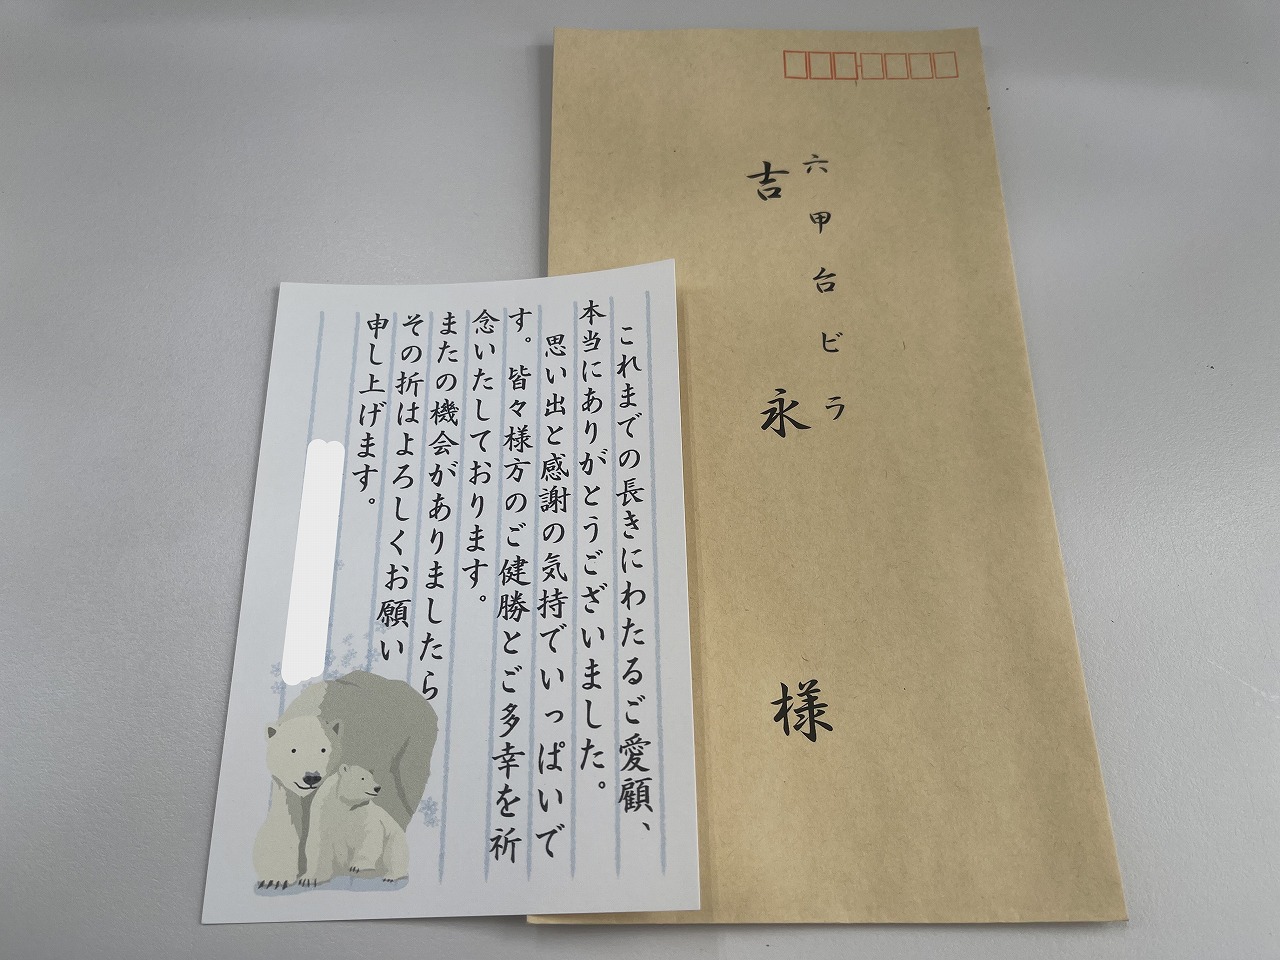 六甲台ビラ
吉永様
これまでの長きにわたるご愛顧、
本当にありがとうございました。
思い出と感謝の気持でいっぱいで
す。皆々様方のご健勝とご多幸を祈
念いたしております。
またの機会がありましたら
その折はよろしくお願い
申し上げます。